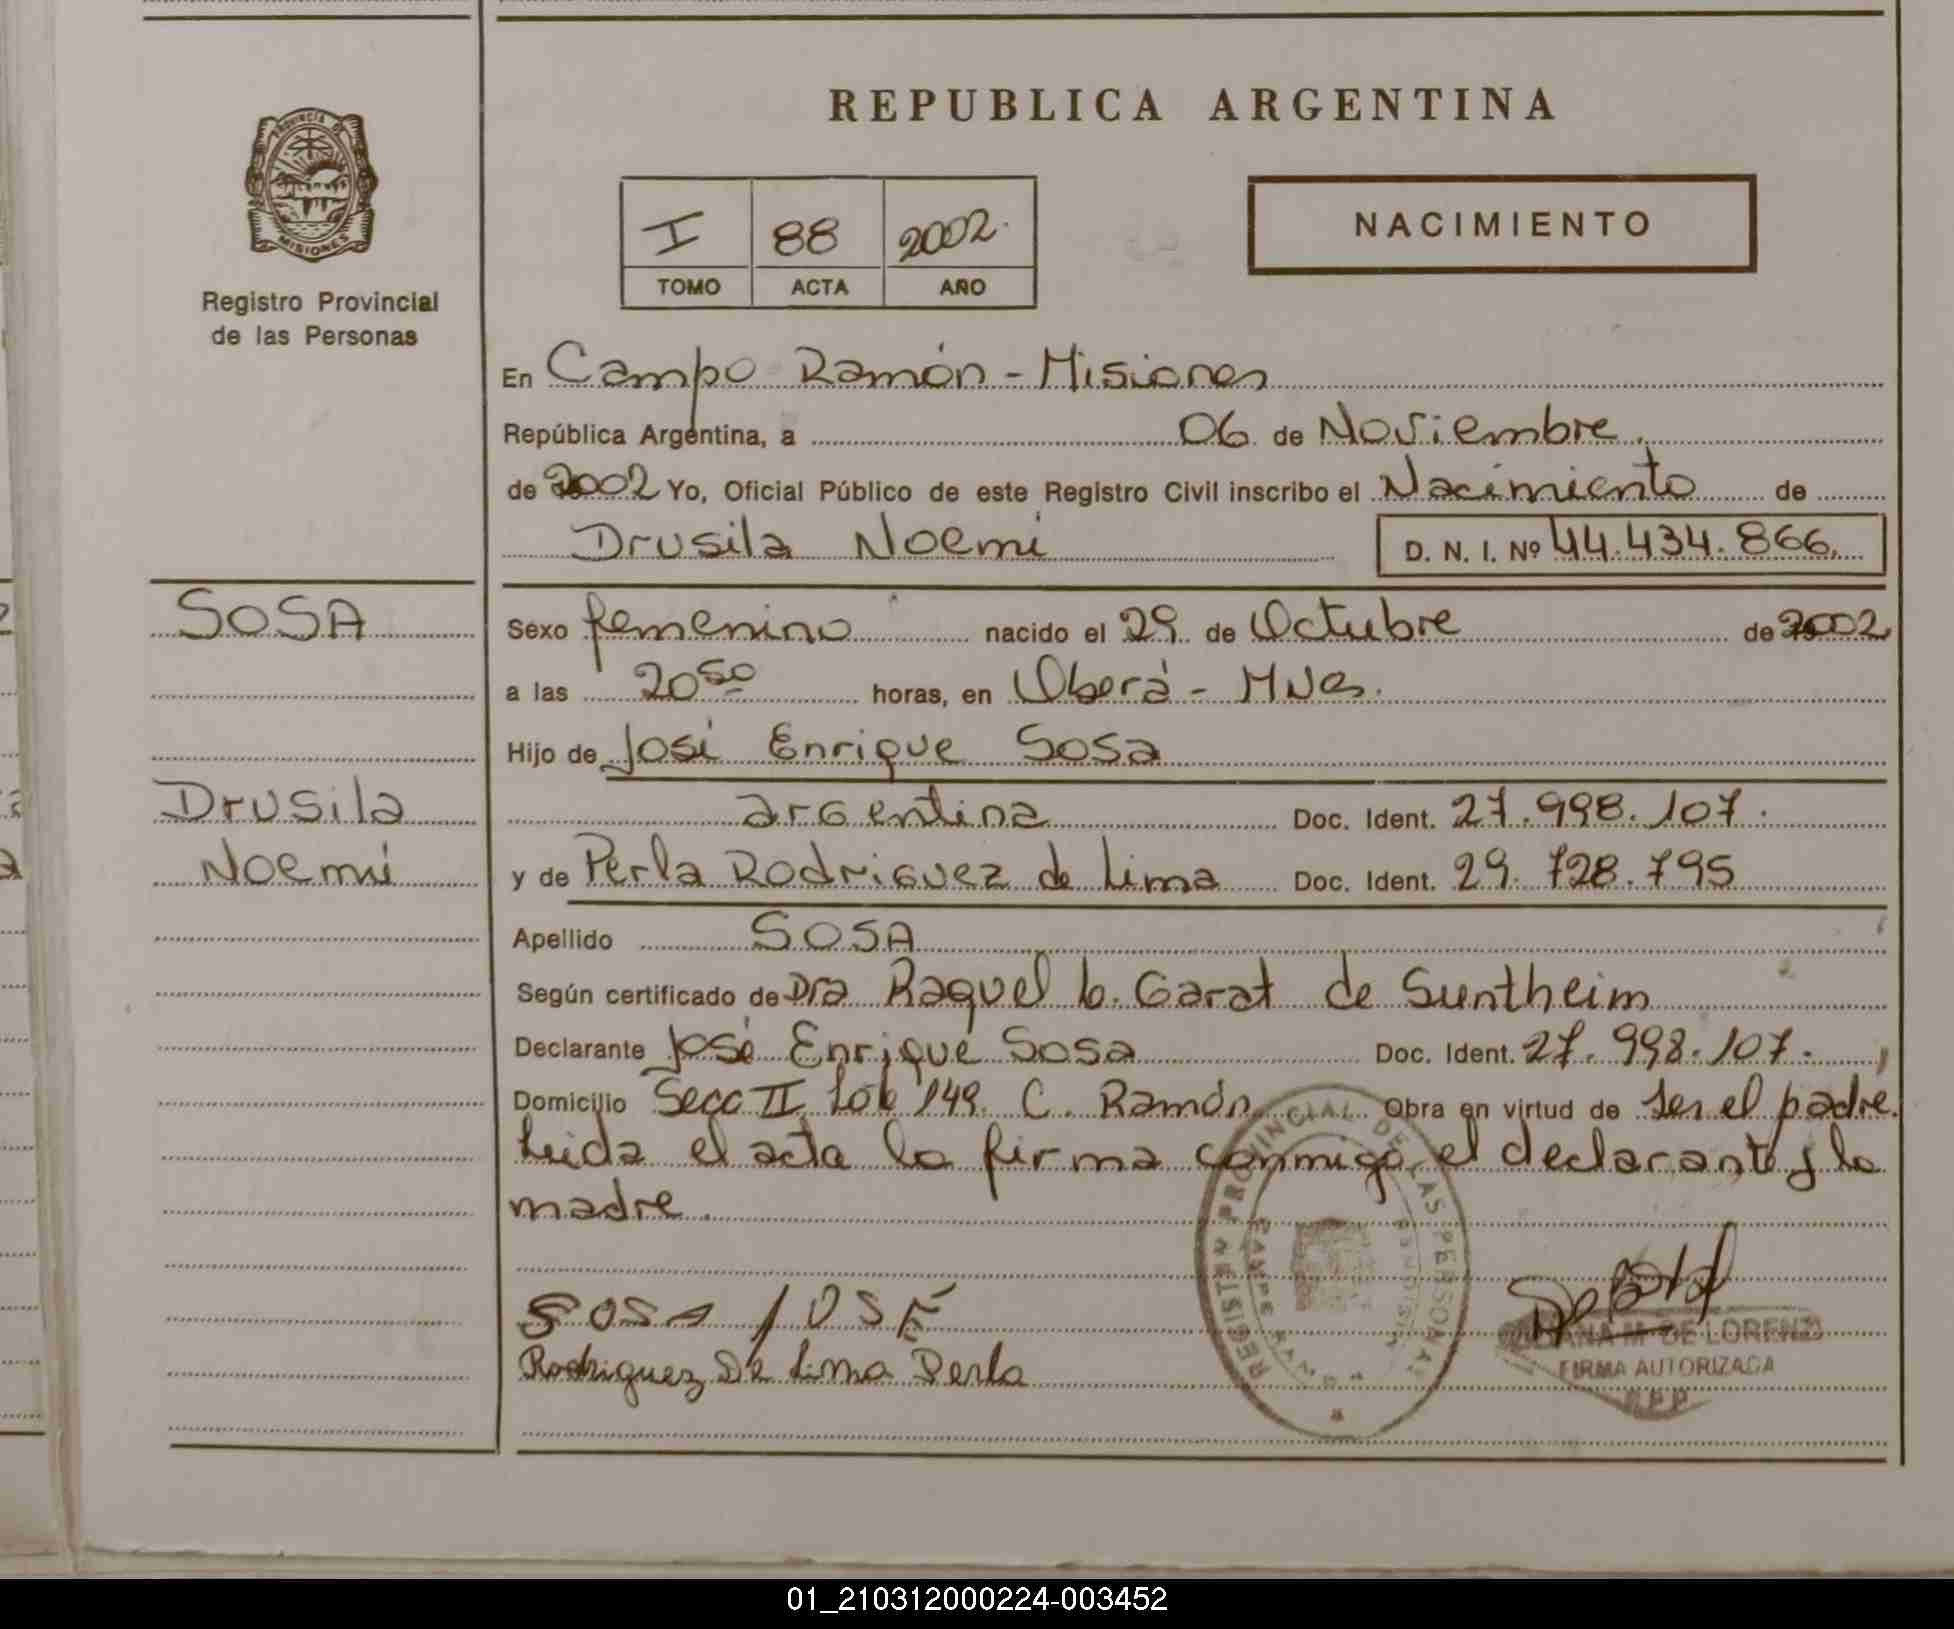 REPUBLICA ARGENTINA
PROVINCIA DE
MISIONES
Registro Provincial
de las Personas
I 88 2002.
TOMO ACTA AÑO
NACIMIENTO
En Campo Ramón - Misiones
República Argentina, a 06 de Noviembre.
de 2002 Yo, Oficial Público de este Registro Civil inscribo el Nacimiento de
Drusila Noemi D. N. I. Nº 44.434.866.
SOSA
Drusila
Noemí
Sexo femenino nacido el 29 de Octubre de 2002
a las 20 50 horas, en Oberá - Mnes.
Hijo de José Enrique Sosa
argentina Doc. Ident. 27.998.107.
y de Perla Rodriguez de Lima Doc. Ident. 29.728.795
Apellido SOSA
Según certificado de Dra Raquel b. Garat de Suntheim
Declarante José Enrique Sosa Doc. Ident. 27.998.107.
Domicilio Secc II Lote 149 C. Ramón Obra en virtud de ser el padre.
Leida el acta la firma conmigo, el declarante y la
madre.
SOSA JOSÉ
Rodriguez De Lima Perla
PROVINCIAL DE LAS PERSONAS
M. DE LORENZI
FIRMA AUTORIZADA
01_210312000224-003452